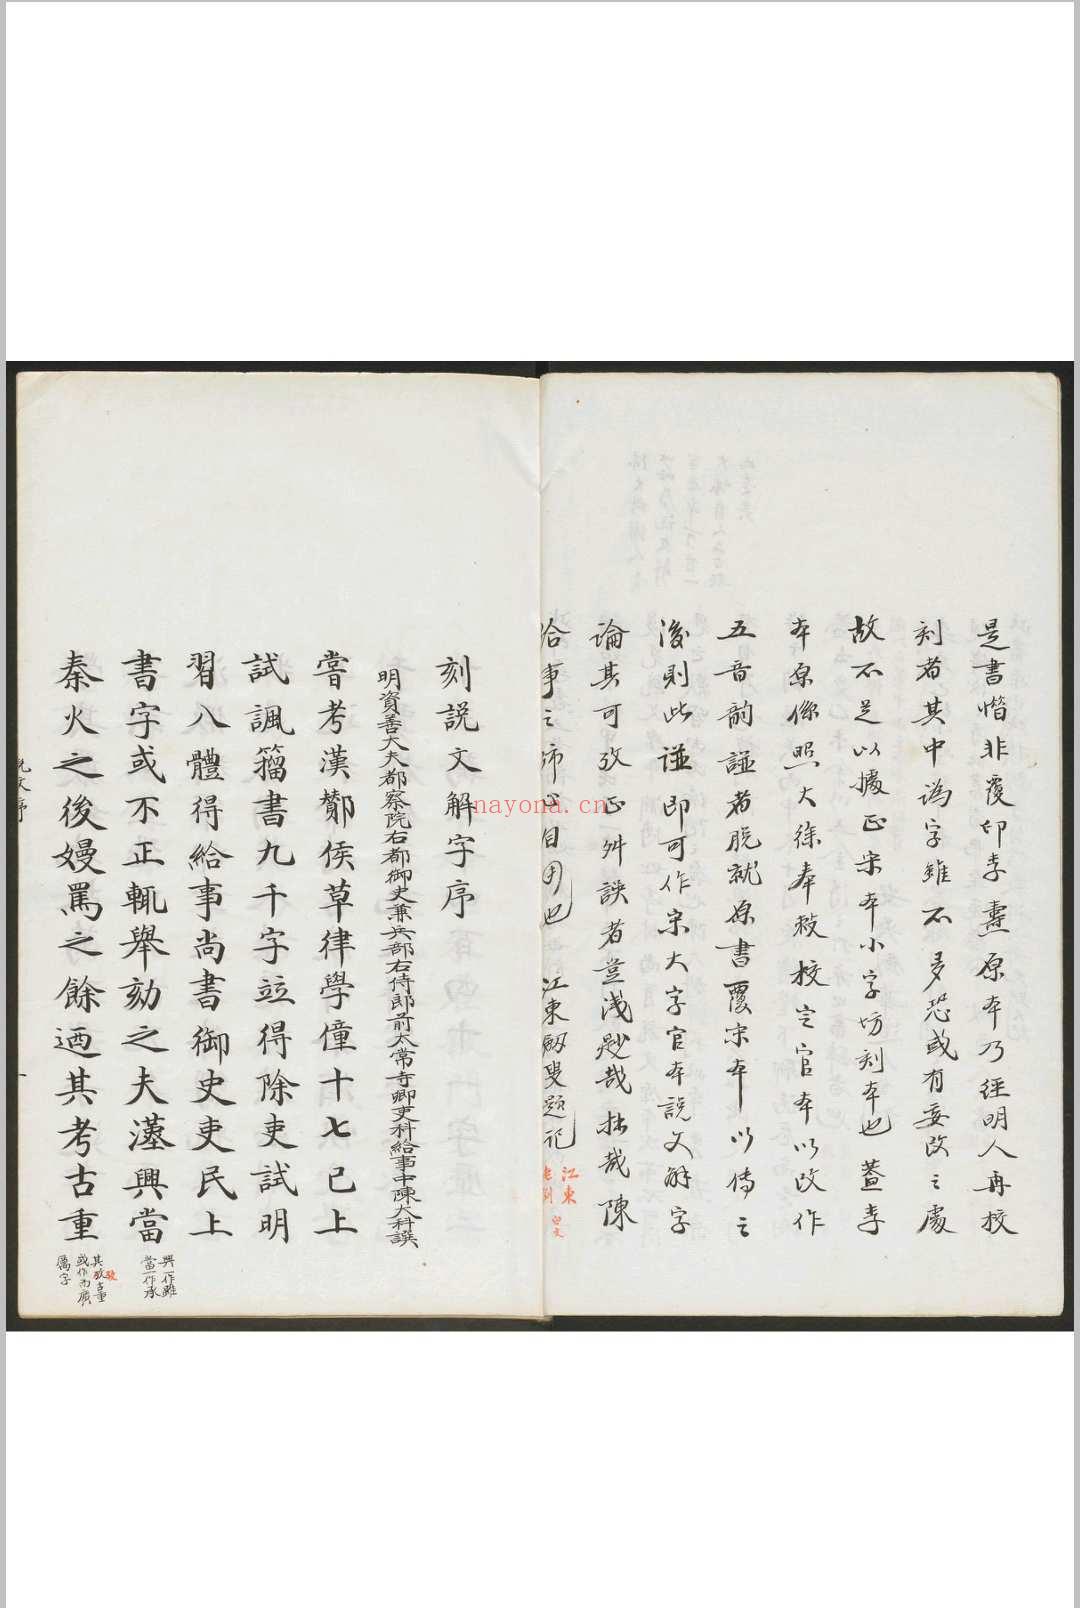 是書惜非覆印李燾原本乃經明人再校
刻者其中譌字雖不多恐或有妄改之處
故不足以據正宋本小字坊刻本也蓋李
本原係照大徐奉敕校定官本以改作
五音韵譜者脫就原書覆宋本以傳之
後則此譜即可作宋大字官本說文解字
論其可攷正舛誤者豈淺尠哉抹哉陳
給事之師心自用也 江東叟題記
江東
白文
刻説文解字序
明資善大夫都察院右都御史兼兵部右侍郎前太常寺卿吏科給事中陳大科譔
嘗考漢酇侯草律學僮十七已上
試諷籀書九千字竝得除吏試明
習八體得給事尚書御史吏民上
書字或不正輒舉劾之夫漢興當
秦火之後嫚罵之餘迺其考古重
興一作雖
當一作承
其攷古重
或作爲廣
厲字
nayona.cn